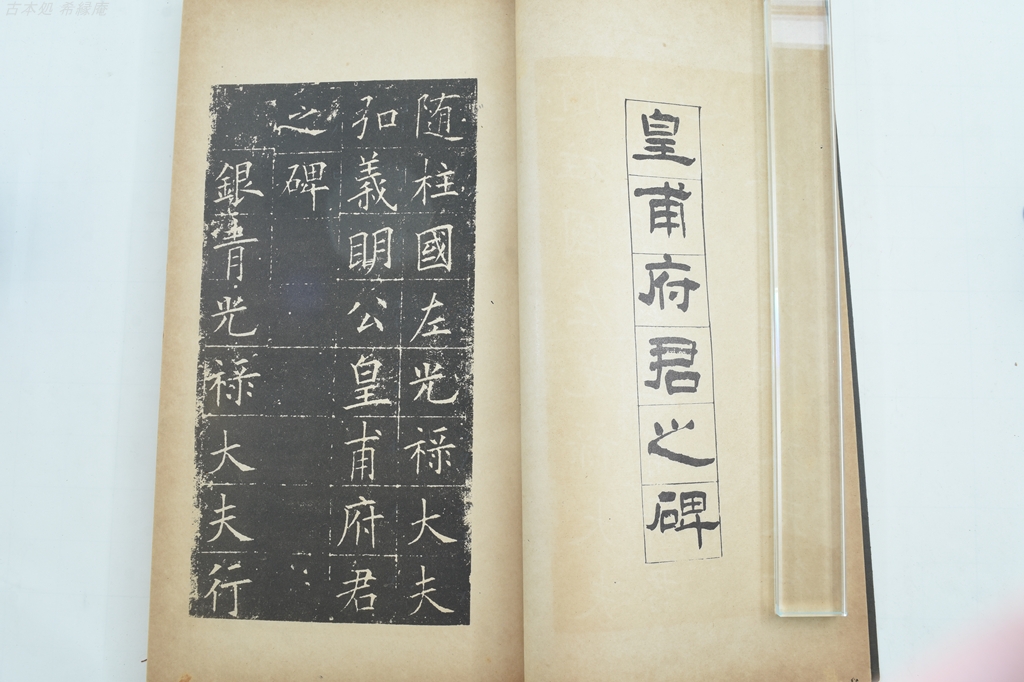 古本処 希縁庵
皇甫府君之碑
随柱國左光祿大夫
弘義明公皇甫府君
之碑
銀青光祿大夫行